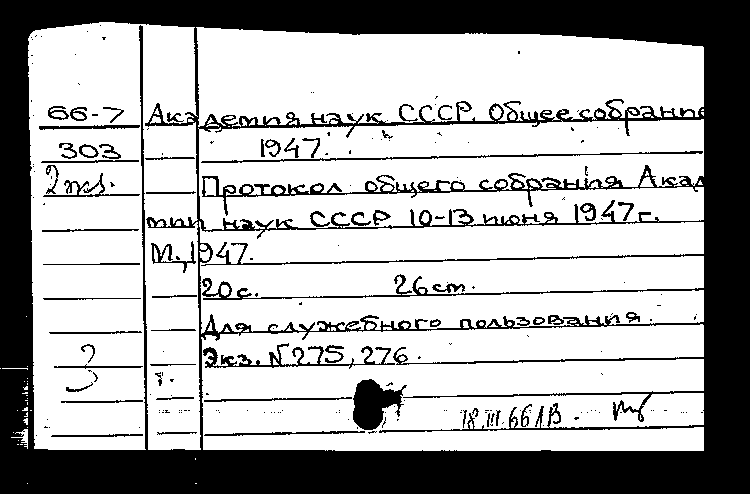 66-7 Академия наук СССР. Общее собрание
303 1947.
2 экз. Протокол общего собрания Акад
мии наук СССР 10-13 июня 1947 г.
М., 1947.
20 с. 26 см.
Для служебного пользования.
Экз. N 275, 276.
3 т.
18.III.66